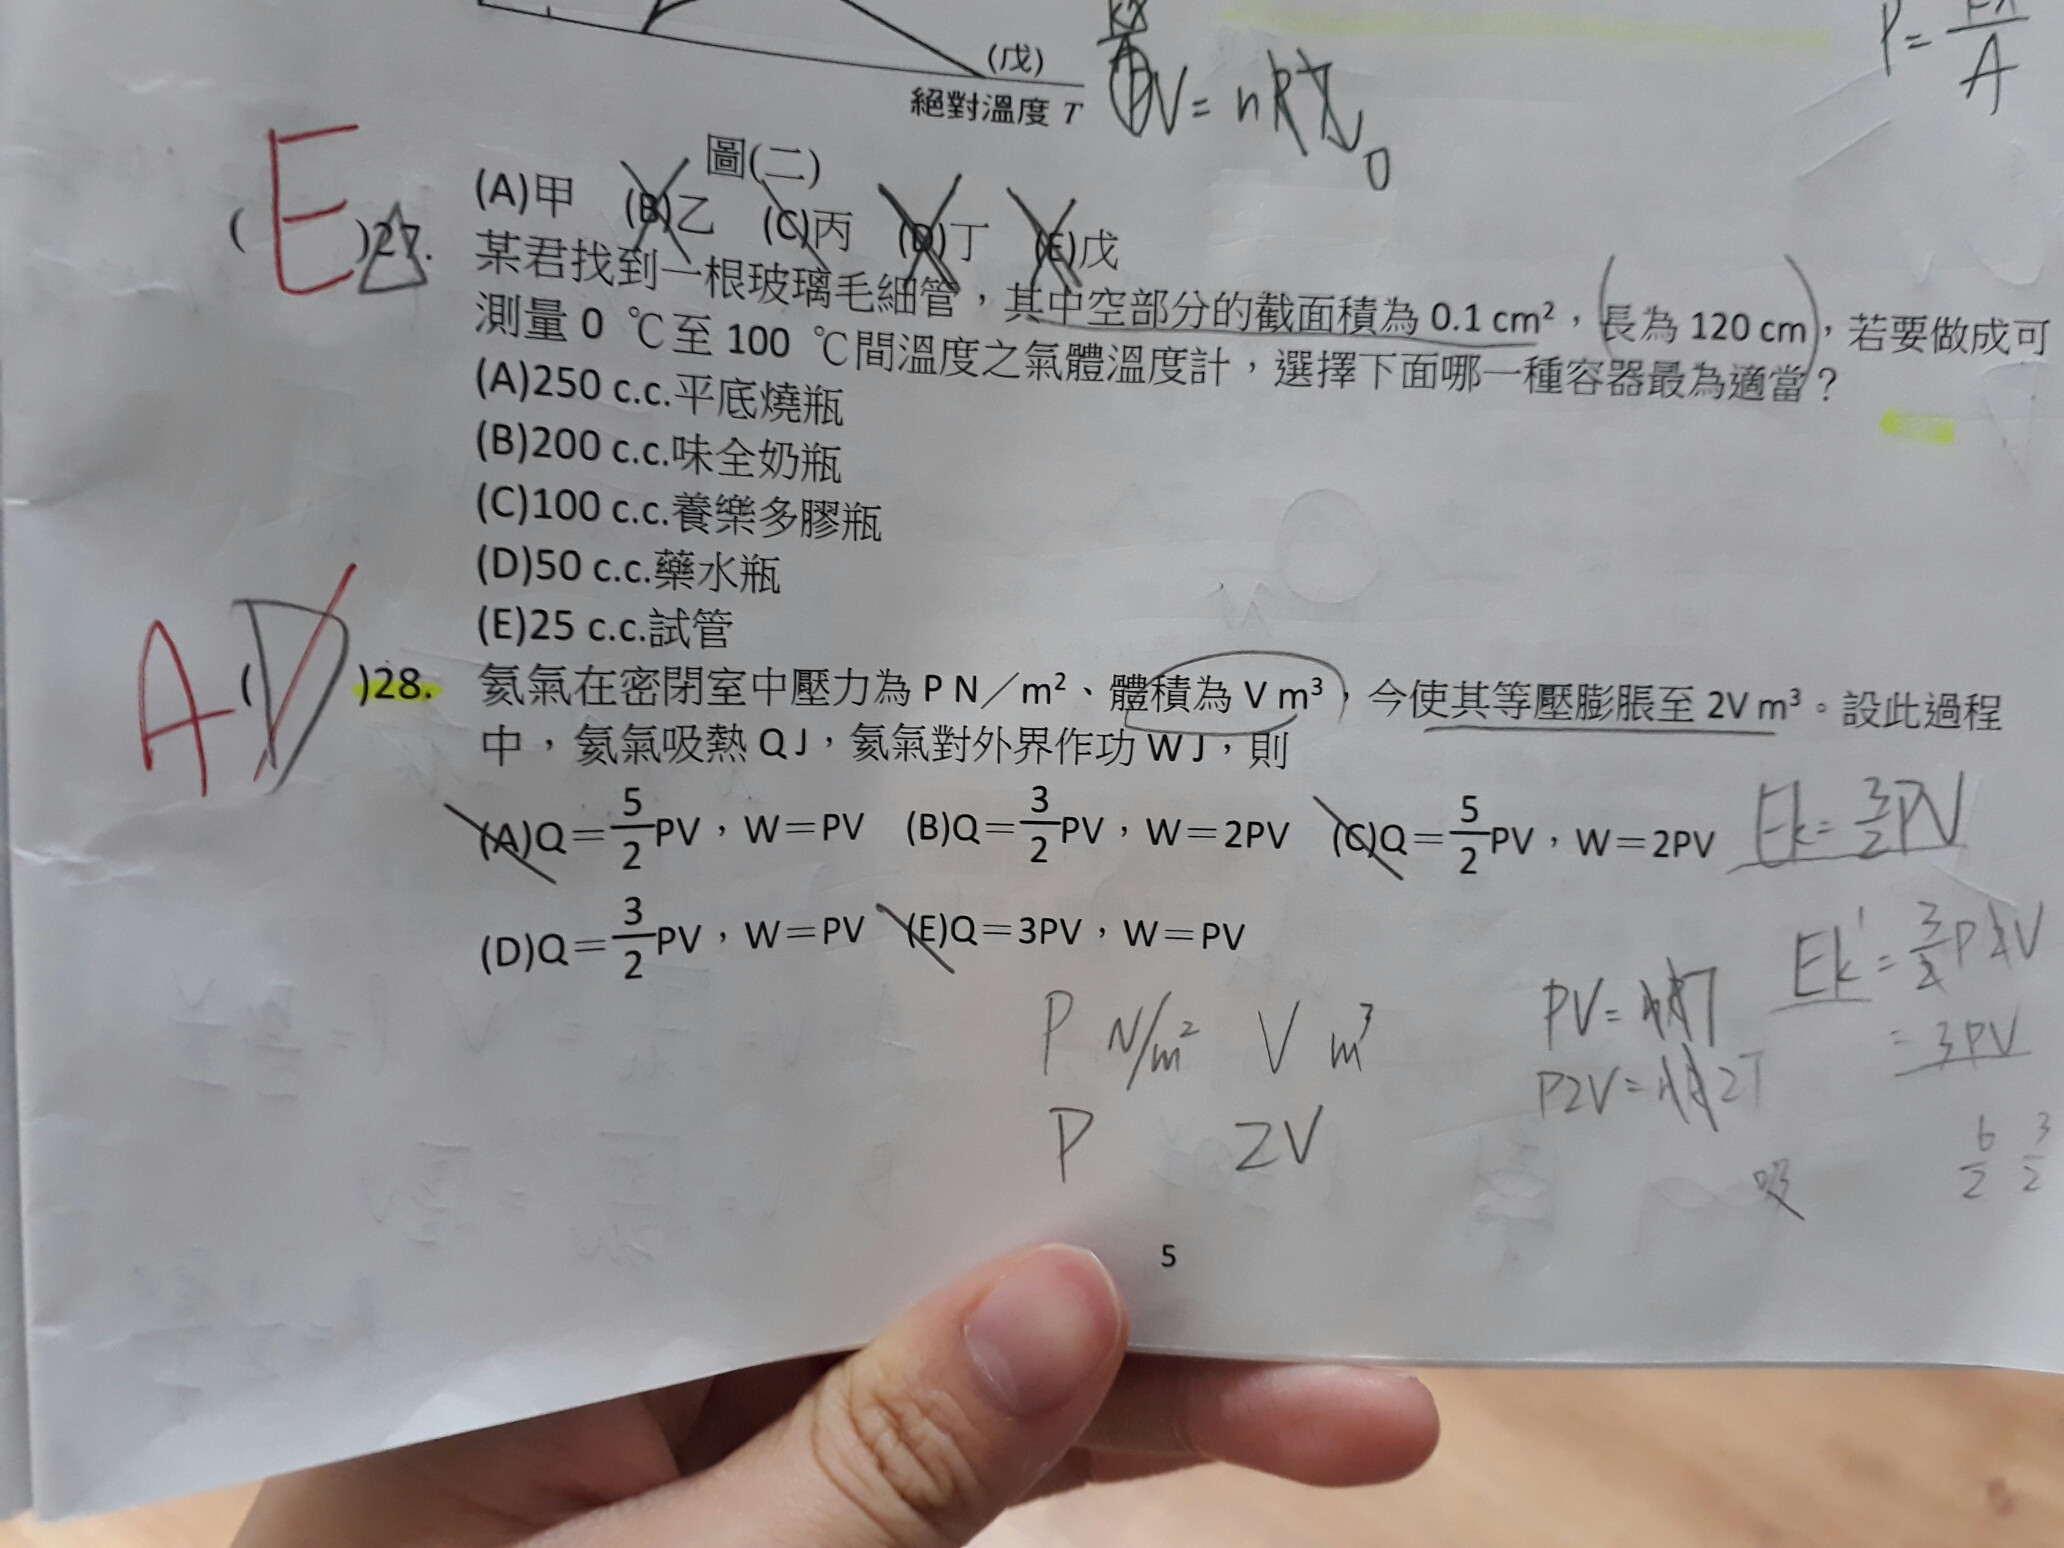 (戊)
絕對溫度 T
PV = nRT
P = A
圖(二)
(A)甲 (B)乙 (C)丙 (D)丁 (E)戊
( E )27. 某君找到一根玻璃毛細管，其中空部分的截面積為 0.1 cm²，長為 120 cm，若要做成可
測量 0 ℃至 100 ℃間溫度之氣體溫度計，選擇下面哪一種容器最為適當？
(A)250 c.c.平底燒瓶
(B)200 c.c.味全奶瓶
(C)100 c.c.養樂多膠瓶
(D)50 c.c.藥水瓶
(E)25 c.c.試管
A ( D )28. 氦氣在密閉室中壓力為 P N／m²、體積為 V m³，今使其等壓膨脹至 2V m³。設此過程
中，氦氣吸熱 Q J，氦氣對外界作功 W J，則
(A)Q＝5/2PV，W＝PV (B)Q＝3/2PV，W＝2PV (C)Q＝5/2PV，W＝2PV
Ek = 3/2 PV
(D)Q＝3/2PV，W＝PV (E)Q＝3PV，W＝PV
Ek' = 3/2 P2V
= 3PV
P N/m² V m³
P 2V
PV = nRT
P2V = nR2T
6/2 3/2
吸
5